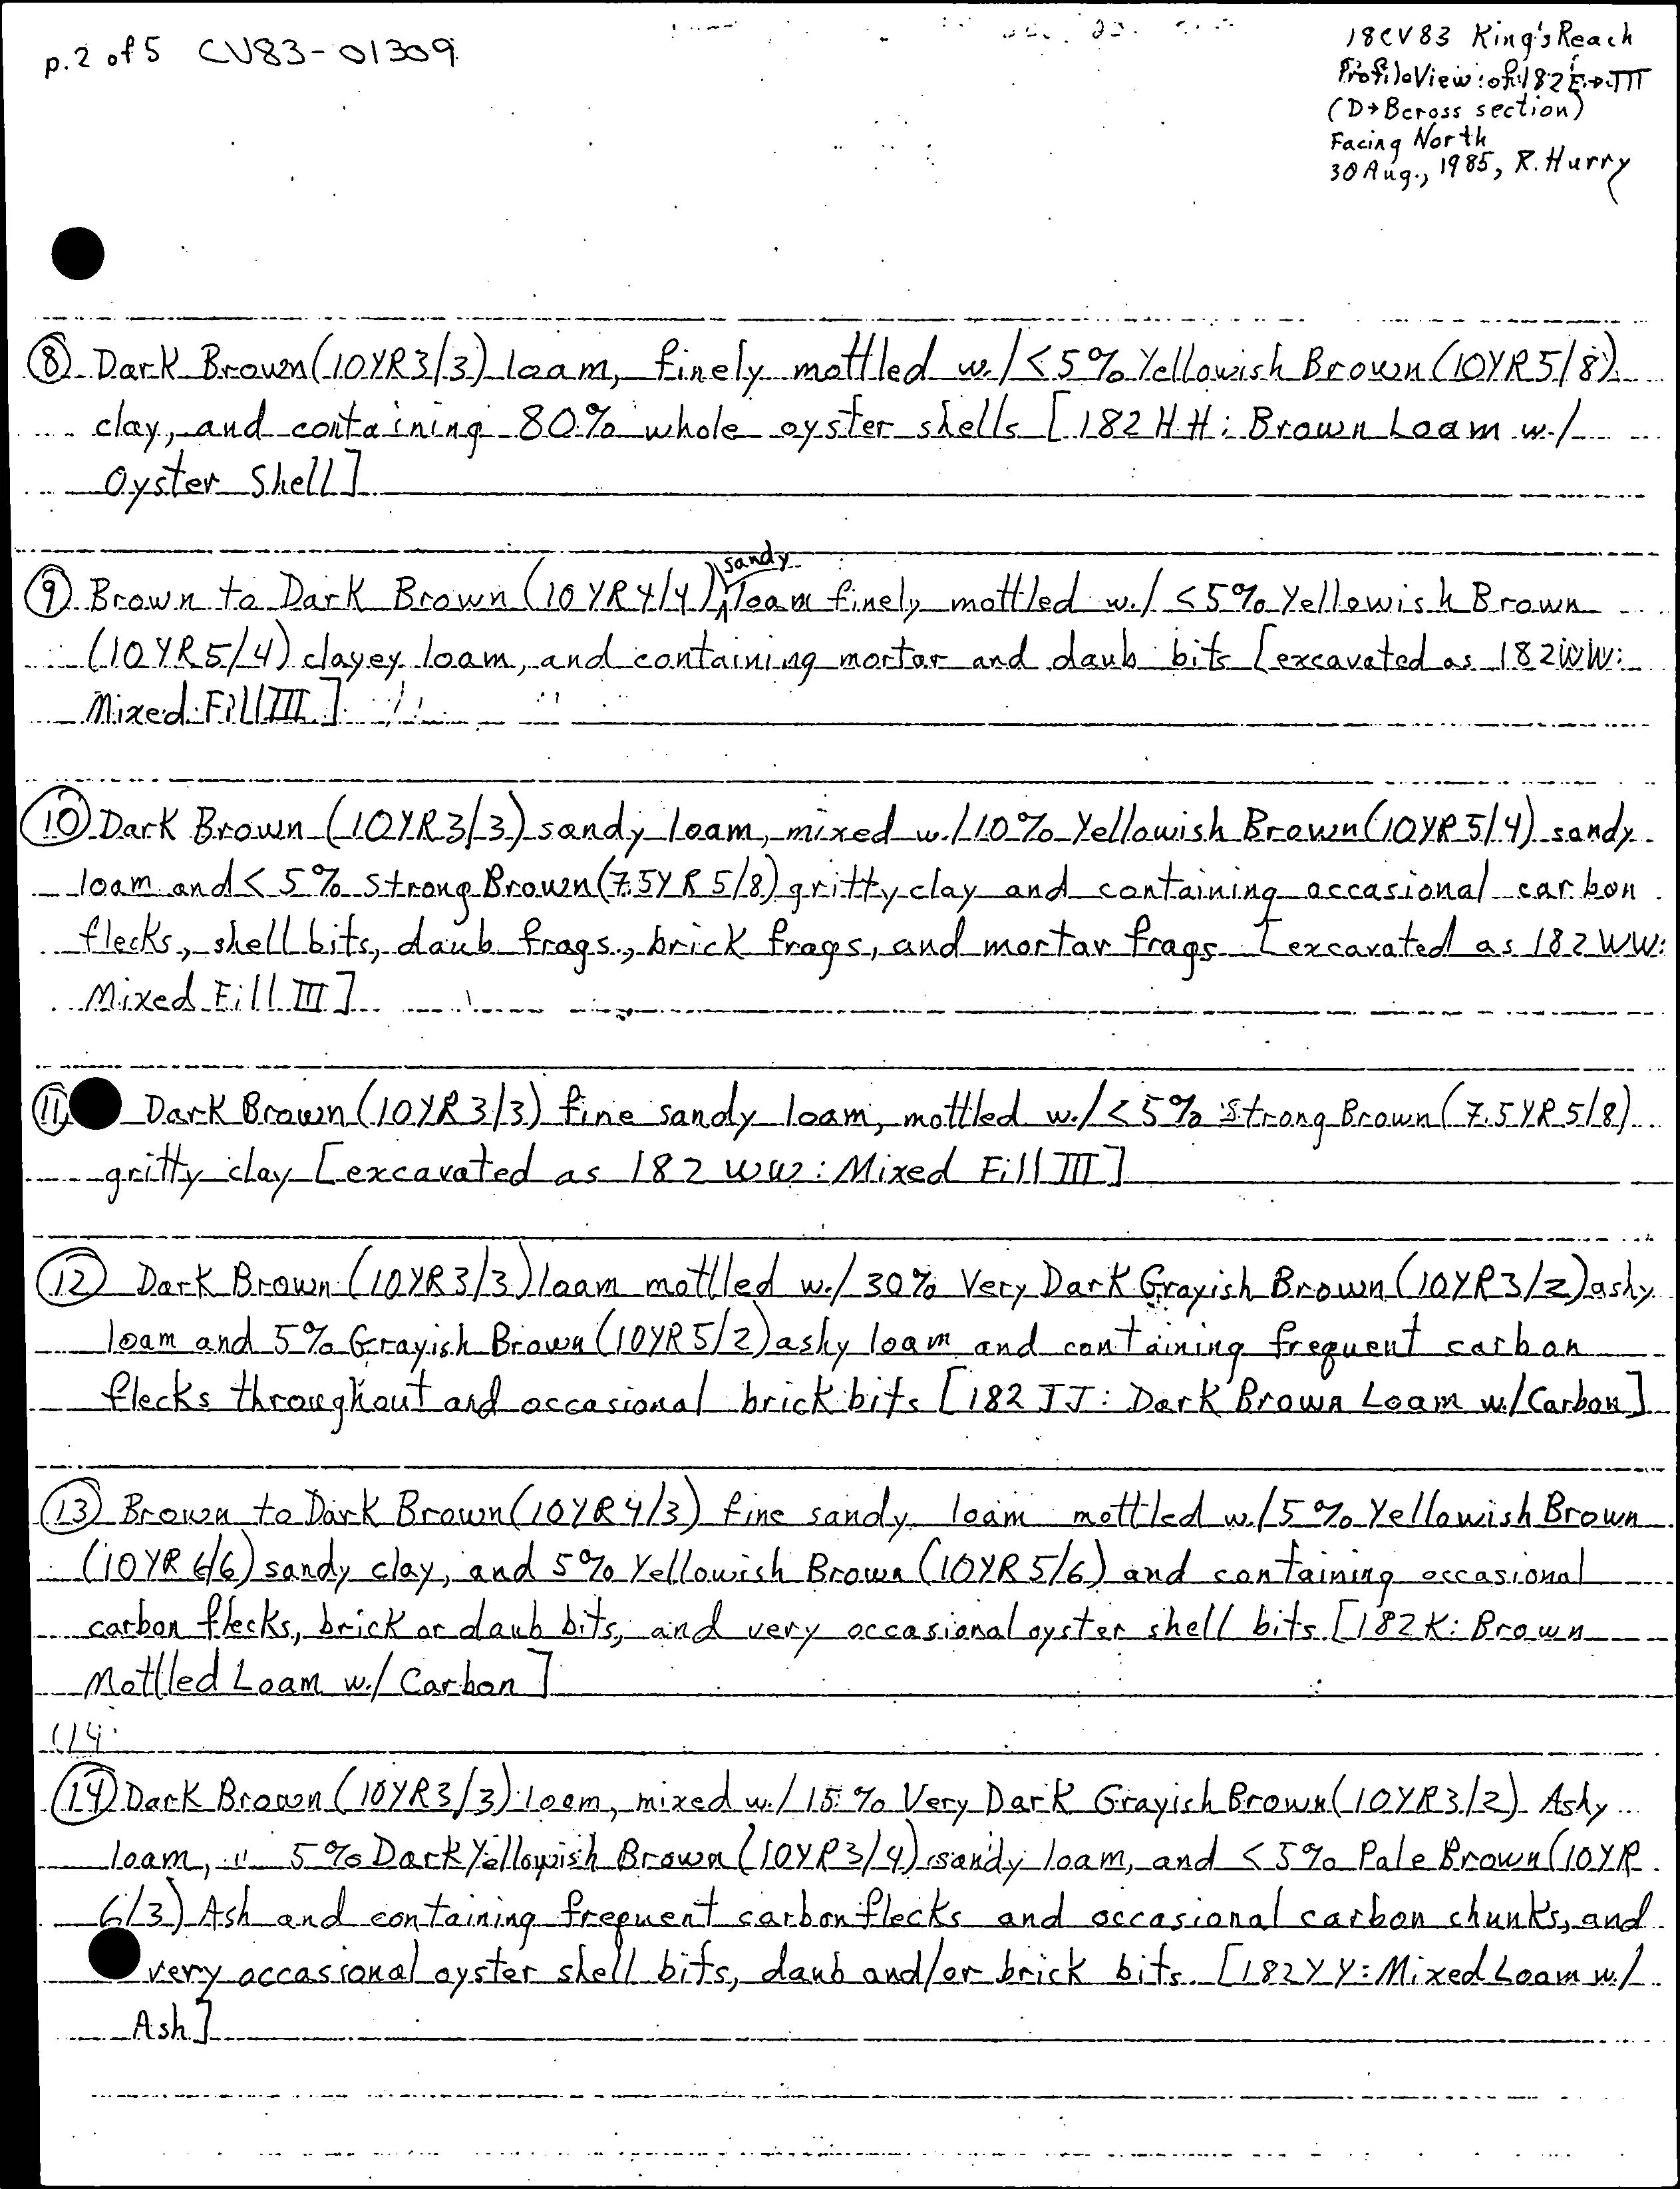 p.2 of 5 CV83-01309
18CV83 King's Reach
Profile View: of 182
(D→B cross section)
Facing North
30 Aug., 1985, R. Hurry
⑧ Dark Brown (10YR3/3) loam, finely mottled w./<5% Yellowish Brown (10YR5/8)
clay, and containing 80% whole oyster shells [182HH: Brown Loam w./
Oyster Shell]
⑨ Brown to Dark Brown (10YR4/4) sandy loam finely mottled w./ <5% Yellowish Brown
(10YR5/4) clayey loam, and containing mortar and daub bits [excavated as 182WW:
Mixed Fill III]
⑩ Dark Brown (10YR3/3) sandy loam, mixed w./10% Yellowish Brown (10YR5/4) sandy
loam and <5% Strong Brown (7.5YR5/8) gritty clay and containing occasional carbon
flecks, shell bits, daub frags., brick frags, and mortar frags [excavated as 182WW:
Mixed Fill III]
⑪ Dark Brown (10YR3/3) fine sandy loam, mottled w./<5% Strong Brown (7.5YR5/8)
gritty clay [excavated as 182 WW: Mixed Fill III]
⑫ Dark Brown (10YR3/3) loam mottled w./30% Very Dark Grayish Brown (10YR3/2) ashy
loam and 5% Grayish Brown (10YR5/2) ashy loam and containing frequent carbon
flecks throughout and occasional brick bits [182 JJ: Dark Brown Loam w./Carbon]
⑬ Brown to Dark Brown (10YR4/3) fine sandy loam mottled w./5% Yellowish Brown
(10YR6/6) sandy clay, and 5% Yellowish Brown (10YR5/6) and containing occasional
carbon flecks, brick or daub bits, and very occasional oyster shell bits [182K: Brown
Mottled Loam w./ Carbon]
(14
⑭ Dark Brown (10YR3/3) loam, mixed w./15% Very Dark Grayish Brown (10YR3/2) Ashy
loam, " 5% Dark Yellowish Brown (10YR3/4) sandy loam, and <5% Pale Brown (10YR
6/3) Ash and containing frequent carbon flecks and occasional carbon chunks, and
very occasional oyster shell bits, daub and/or brick bits. [182YY: Mixed Loam w./
Ash]